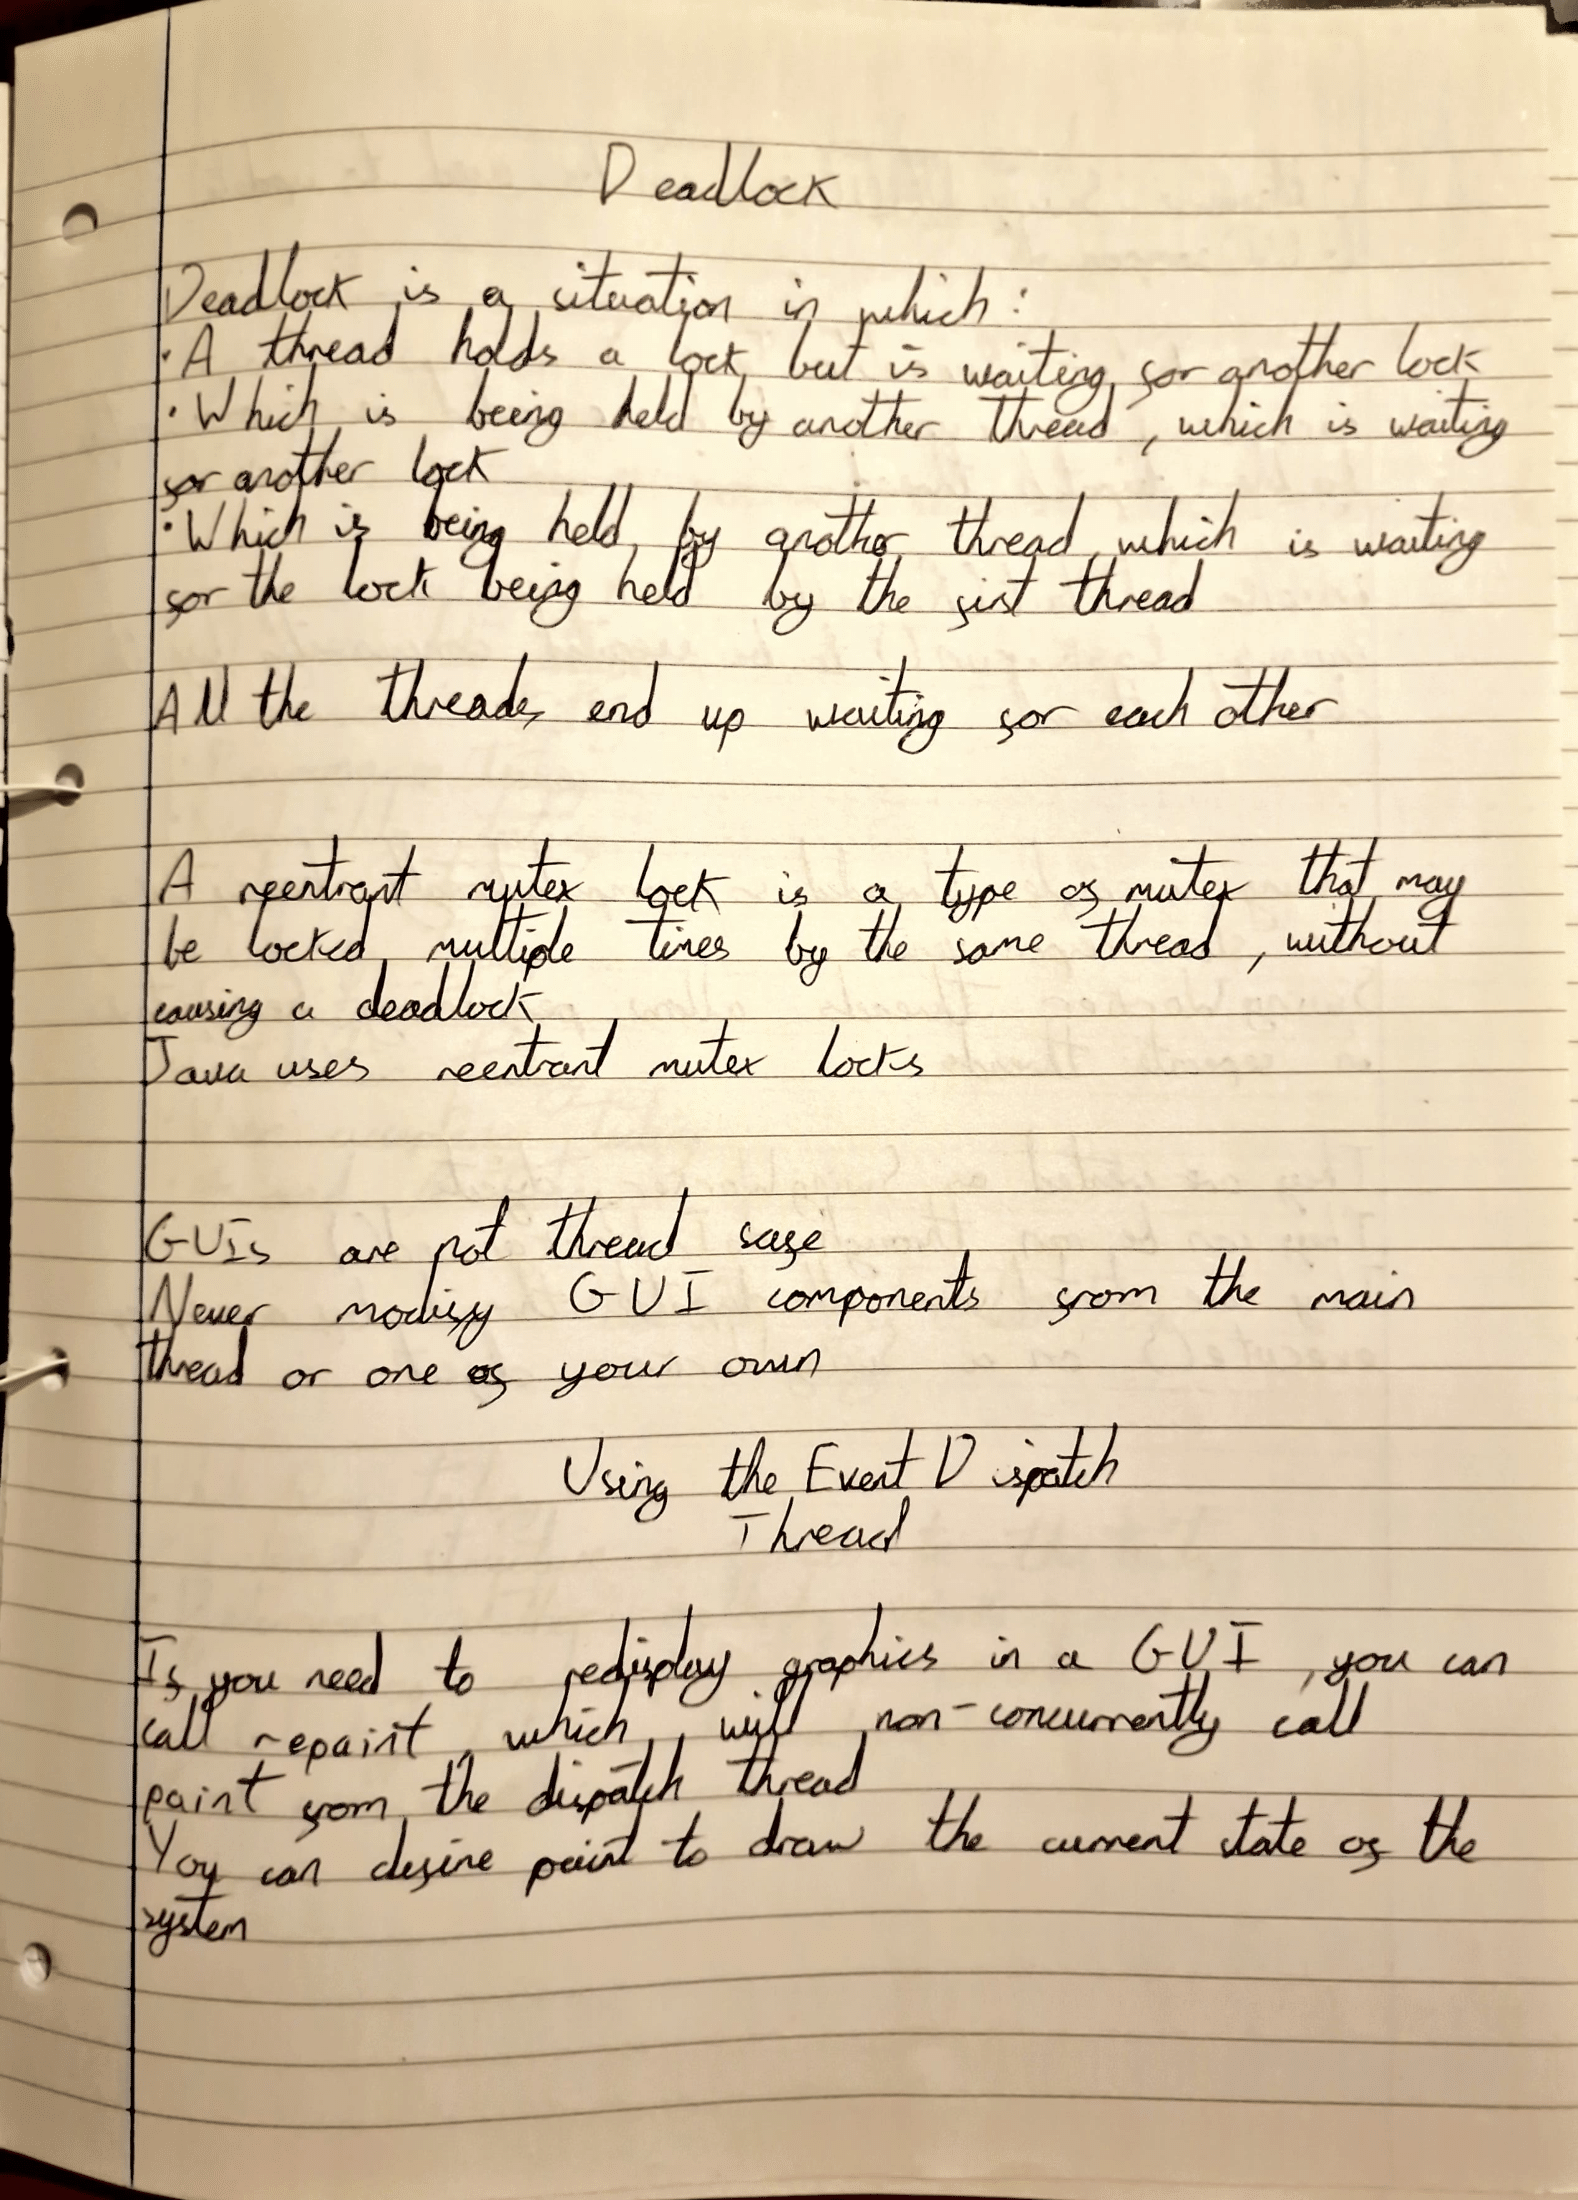 Deadlock
Deadlock is a situation in which:
· A thread holds a lock but is waiting for another lock
· Which is being held by another thread, which is waiting
for another lock
· Which is being held by another thread which is waiting
for the lock being held by the first thread
All the threads end up waiting for each other
A reentrant mutex lock is a type of mutex that may
be locked multiple times by the same thread, without
causing a deadlock
Java uses reentrant mutex locks
GUIs are not thread safe
Never modify GUI components from the main
thread or one of your own
Using the Event Dispatch
Thread
If you need to redisplay graphics in a GUI, you can
call repaint which will non-concurrently call
paint from the dispatch thread
You can define paint to draw the current state of the
system